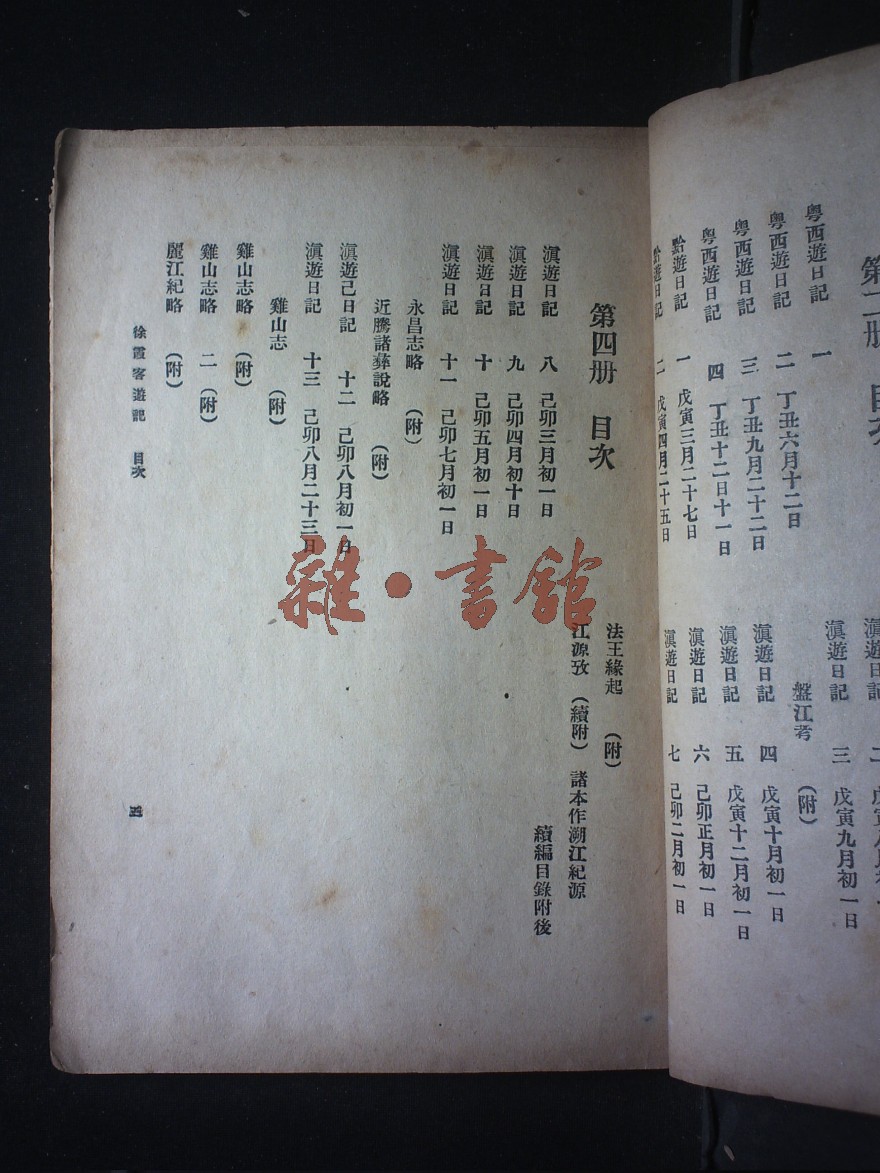 粵西遊日記 一
粵西遊日記 二 丁丑六月十二日
粵西遊日記 三 丁丑九月二十二日
粵西遊日記 四 丁丑十二日十一日
黔遊日記 一 戊寅三月二十七日
黔遊日記 二 戊寅四月二十五日
滇遊日記 二
滇遊日記 三 戊寅九月初一日
盤江考 （附）
滇遊日記 四 戊寅十月初一日
滇遊日記 五 戊寅十二月初一日
滇遊日記 六 己卯正月初一日
滇遊日記 七 己卯二月初一日
第四册 目次
滇遊日記 八 己卯三月初一日
滇遊日記 九 己卯四月初十日
滇遊日記 十 己卯五月初一日
滇遊日記 十一 己卯七月初一日
永昌志略 （附）
近騰諸彝說略 （附）
滇遊己日記 十二 己卯八月初一日
滇遊日記 十三 己卯八月二十三日
雞山志 （附）
雞山志略 （附）
雞山志略 二 （附）
麗江紀略 （附）
法王緣起 （附）
江源攷 （續附） 諸本作溯江紀源
續編目錄附後
徐霞客遊記 目次
四
雜·書館